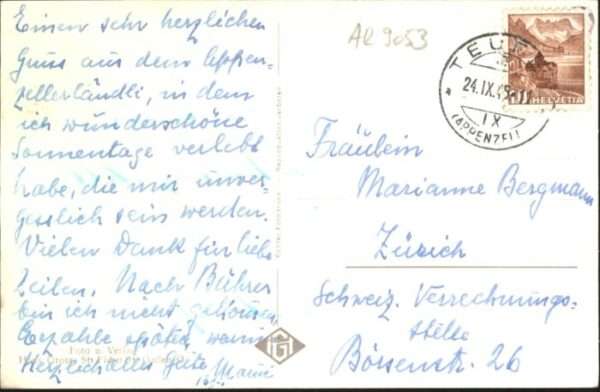 Einen sehr herzlichen
Gruss aus dem Appen-
zellerländli, in dem
ich wunderschöne
Sonnentage verlebt
habe, die mir unver-
gesslich sein werden.
Vielen Dank für liebe
Zeilen. Nach Bühler
bin ich nicht gekommen
Erzähle später, warum
Herzlich alles Gute
AR 9053
TEUFEN
24.IX.45-11
IX
(APPENZELL)
HELVETIA
Fräulein
Marianne Bergmann
Zürich
Schweiz. Verrechnungs-
stelle
Börsenstr. 26
Foto u. Verlag